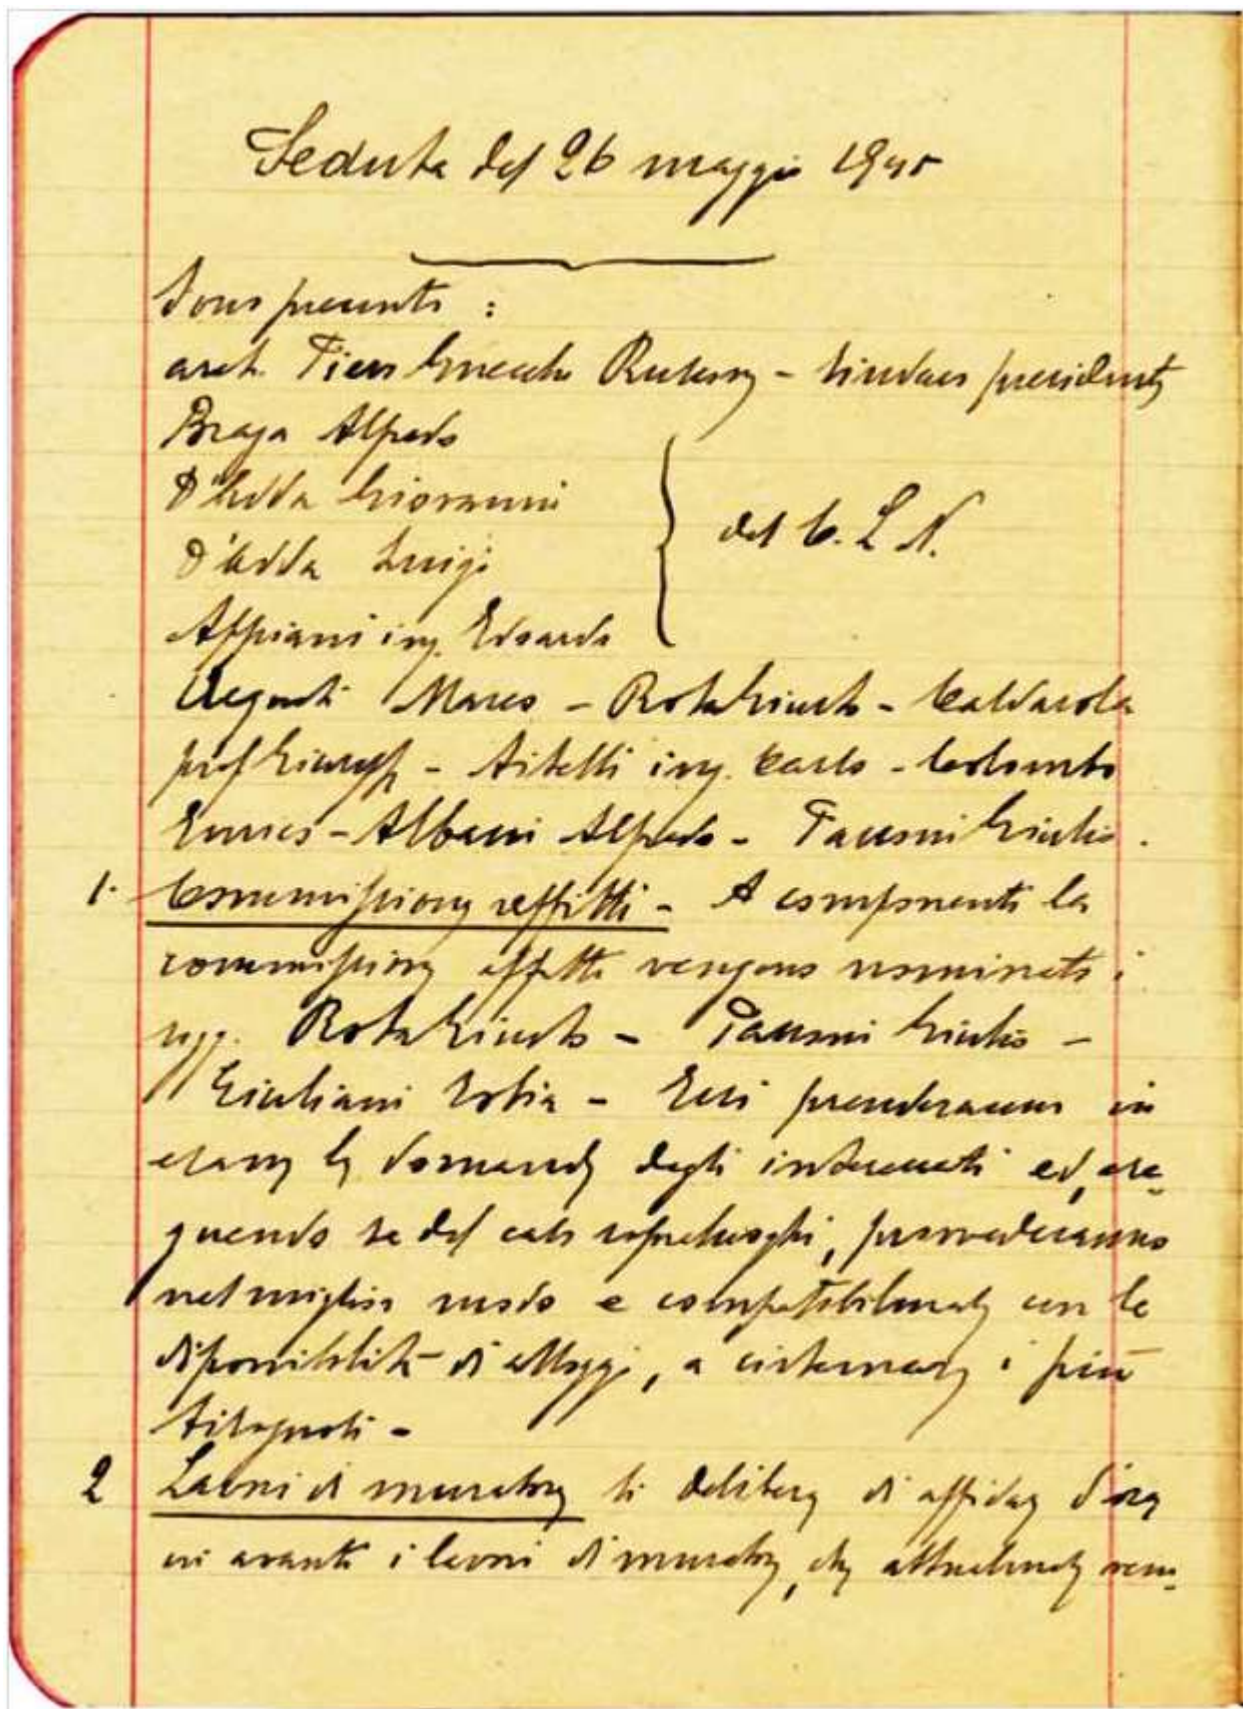 Seduta del 26 maggio 1945
Sono presenti :
arch. Piero Ruterny - Sindaco presidente
Braga Alfredo
D'Adda Giovanni
D'Adda Luigi
Appiani ing. Edoardo
del C. L. N.
Marco - Rota Giusto - Caldarola
prof Giuseppe - Sibelli ing. Carlo - Colombo
Enrico - Albani Alfredo - Giulio .
1. Commissione affitti - A componenti la
commissione affitti vengono nominati i
sigg. Rota Giusto - Giulio -
Giuliani - Essi prenderanno in
esame le domande degli interessati ed, ese-
guendo se del caso sopraluoghi, provvederanno
nel miglior modo e compatibilmente con le
disponibilità di alloggi, a sistemare i più
bisognosi -
2 Lavori di muratore Si delibera di affidare d'ora
in avanti i lavori di muratore, che attualmente ven-